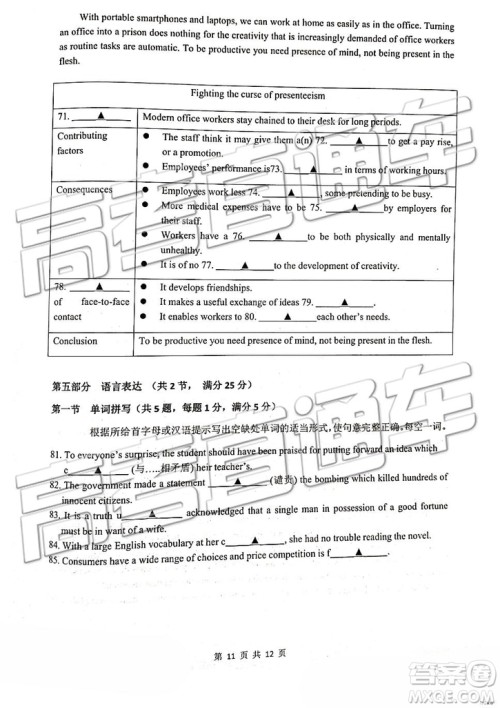 With portable smartphones and laptops, we can work at home as easily as in the office. Turning
an office into a prison does nothing for the creativity that is increasingly demanded of office workers
as routine tasks are automatic. To be productive you need presence of mind, not being present in the
flesh.
Fighting the curse of presenteeism
71. ▲ Modern office workers stay chained to their desk for long periods.
Contributing factors
● The staff think it may give them a(n) 72. ▲ to get a pay rise,
or a promotion.
● Employees' performance is73. ▲ in terms of working hours.
Consequences
● Employees work less 74. ▲, some pretending to be busy.
● More medical expenses have to be 75. ▲ by employers for
their staff.
● Workers have a 76. ▲ to be both physically and mentally
unhealthy.
● It is of no 77. ▲ to the development of creativity.
78. ▲
of face-to-face
contact
● It develops friendships.
● It makes a useful exchange of ideas 79. ▲
● It enables workers to 80. ▲ each other's needs.
Conclusion To be productive you need presence of mind, not being present in the flesh.
第五部分 语言表达 (共 2 节, 满分 25 分)
第一节 单词拼写(共 5 题,每题 1 分,满分 5 分)
根据所给首字母或汉语提示写出空缺处单词的适当形式,使句意完整无误,每空一词。
81. To everyone's surprise, the student should have been praised for putting forward an idea which
c ▲ (与……相矛盾) their teacher's.
82. The government made a statement ▲ (谴责) the bombing which killed hundreds of
innocent citizens.
83. It is a truth u ▲ acknowledged that a single man in possession of a good fortune
must be in want of a wife.
84. With a large English vocabulary at her c ▲, she had no trouble reading the novel.
85. Consumers have a wide range of choices and price competition is f ▲.
第 11 页 共 12 页
高考直通车
答案圈